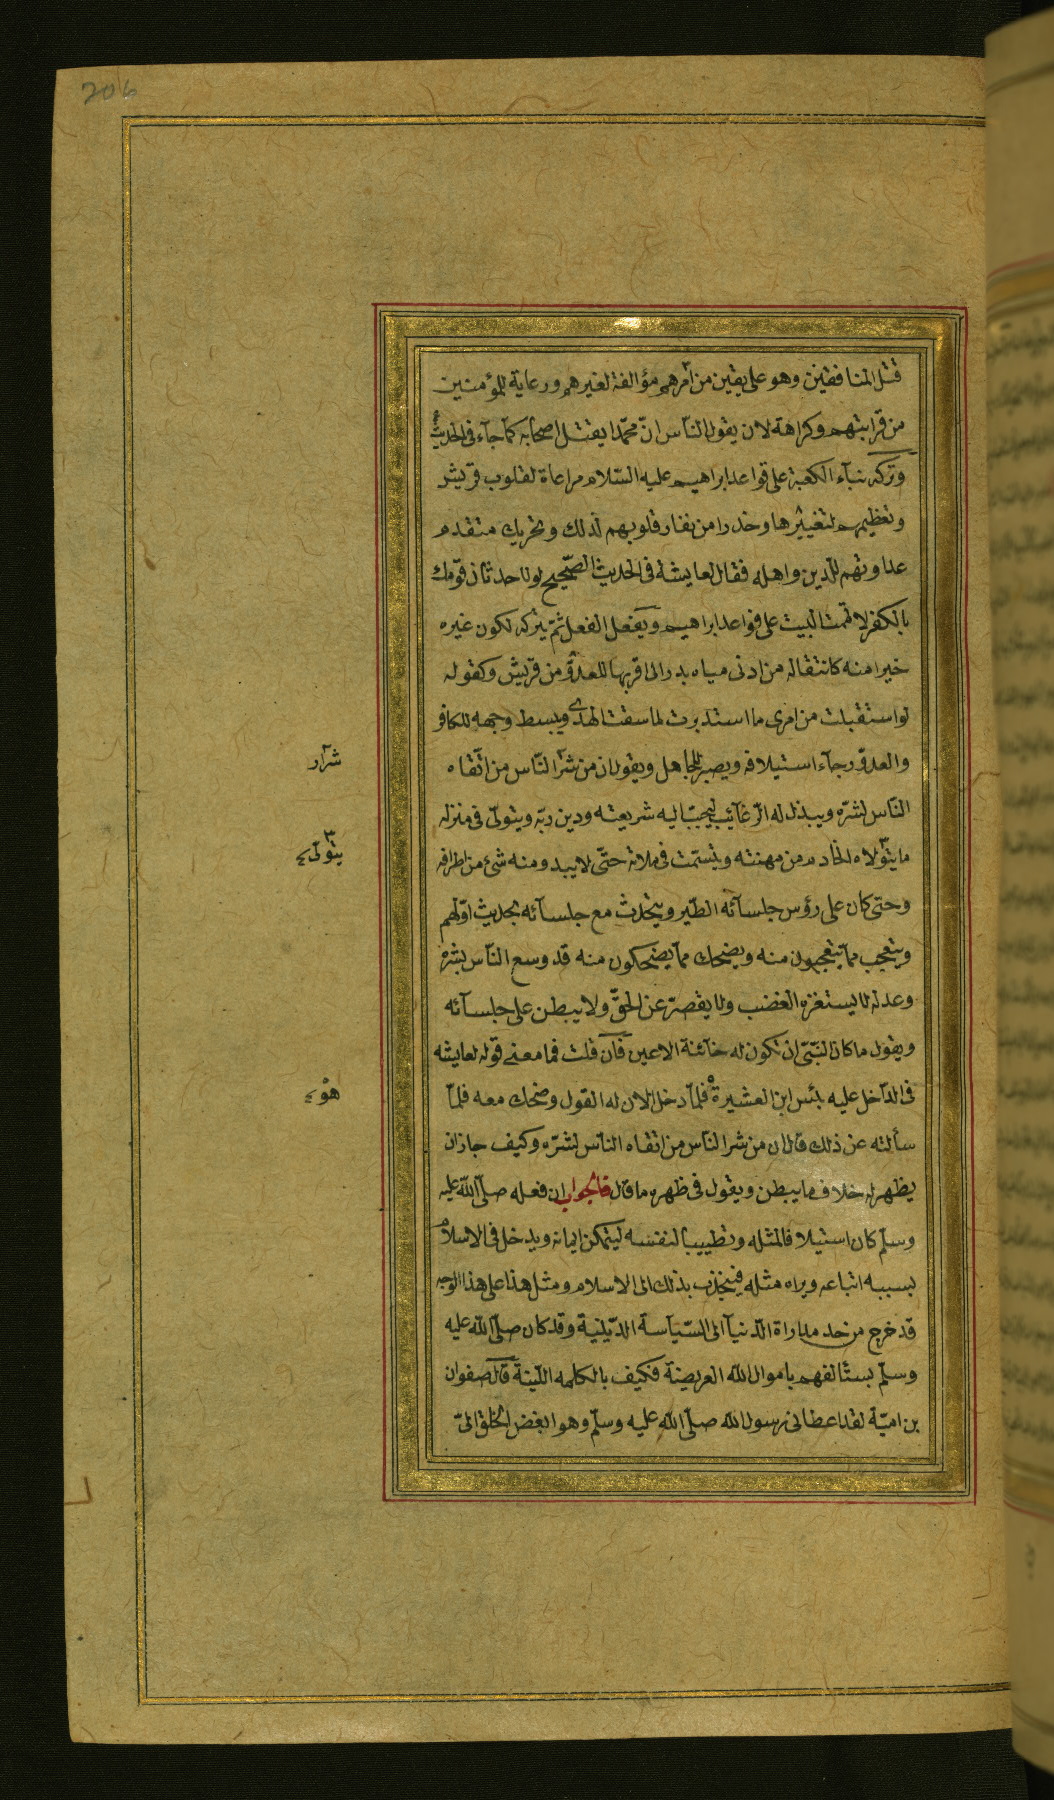 206
قتل المنافقين وهو على يقين من امرهم مؤالفة لغيرهم ورعاية للمؤمنين
من قرابتهم وكراهة لان يقول الناس انّ محمّدا يقتل اصحابه كما جآء فى الحديث
وتركه بنآء الكعبة على قواعد ابراهيم عليه السّلام مراعاة لقلوب قريش
وتعظيمهم لتغييرها وحذرا من نفار قلوبهم لذلك وتحريك متقدم
عداوتهم للدين واهله فقال لعايشة فى الحديث الصّحيح لولا حدثان قومك
بالكفر لاتممت البيت على قواعد ابراهيم ويفعل الفعل ثمّ يتركه لكون غيره
خيرا منه كانتقاله من ادنى مياه بدر الى اقربها للعدوّ من قريش وكقوله
لو استقبلت من امرى ما استدبرت لما سقت الهدى ويبسط وجهه للكافر
والعدوّ رجآء استيلافه ويصبر للجاهل ويقول ان من شرّ النّاس من اتّقاه
النّاس لشرّه ويبذل له الرّغائب ليحبّب اليه شريعته ودين ربّه ويتولّى فى منزله
ما يتولاه الخادم من مهنته ويتسمّت فى ملائه حتّى لا يبدو منه شئ من اطرافه
وحتى كان على رؤس جلسآئه الطّير ويتحدث مع جلسآئه بحديث اوّلهم
ويتعجب ممّا يتعجبون منه ويضحك ممّا يضحكون منه قد وسع النّاس بشره
وعدله لا يستفزه الغضب ولا يقصر عن الحقّ ولا يبطن على جلسآئه
ويقول ما كان لنبّى ان تكون له خآئنة الاعين فان قلت فما معنى قوله لعايشه
فى الدآخل عليه بئس ابن العشيرة فلمّا دخل الان له القول وضحك معه فلمّا
سألته عن ذلك قال ان من شر النّاس من اتقاه النّاس لشرّه وكيف جاز ان
يظهر له خلاف ما يبطن ويقول فى ظهره ما قال فالجواب ان فعله صلّى اللّه عليه
وسلّم كان استيلافا لمثله وتطييبا لنفسه ليتمكن ايمانه ويدخل فى الاسلام
بسببه اتباعه ويراه مثله فينجذب بذلك الى الاسلام ومثل هذا على هذا الوجه
قد خرج من حد مداراة الدّنيا الى السّياسة الدّينية وقد كان صلّى اللّه عليه
وسلّم يستألفهم باموال اللّه العريضة فكيف بالكلمه اللّينة قال صفوان
بن اميّة لقد اعطانى رسول اللّه صلّى اللّه عليه وسلّم وهو ابغض الخلق الىّ
شرار
يتولّى
هو